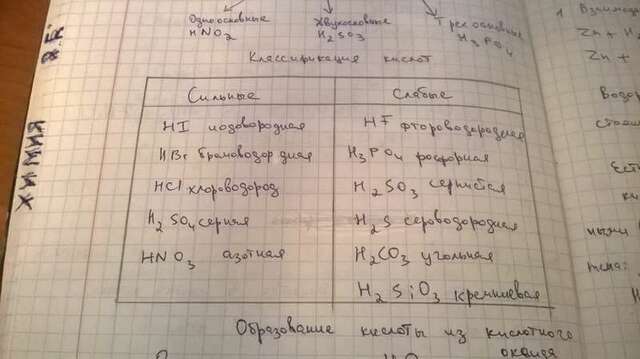 Одноосновные Двухосновные Трехосновные
HNO2 H2SO3 H3PO4
Классификация кислот
Сильные Слабые
HI иодовородная HF фтороводородная
HBr бромоводор дная H3PO4 фосфорная
HCl хлороводород H2SO3 сернистая
H2SO4 серная H2S сероводородная
HNO3 азотная H2CO3 угольная
H2SiO3 кремниевая
Образование кислоты из кислотного
оксида
химия
Zn +
Zn +